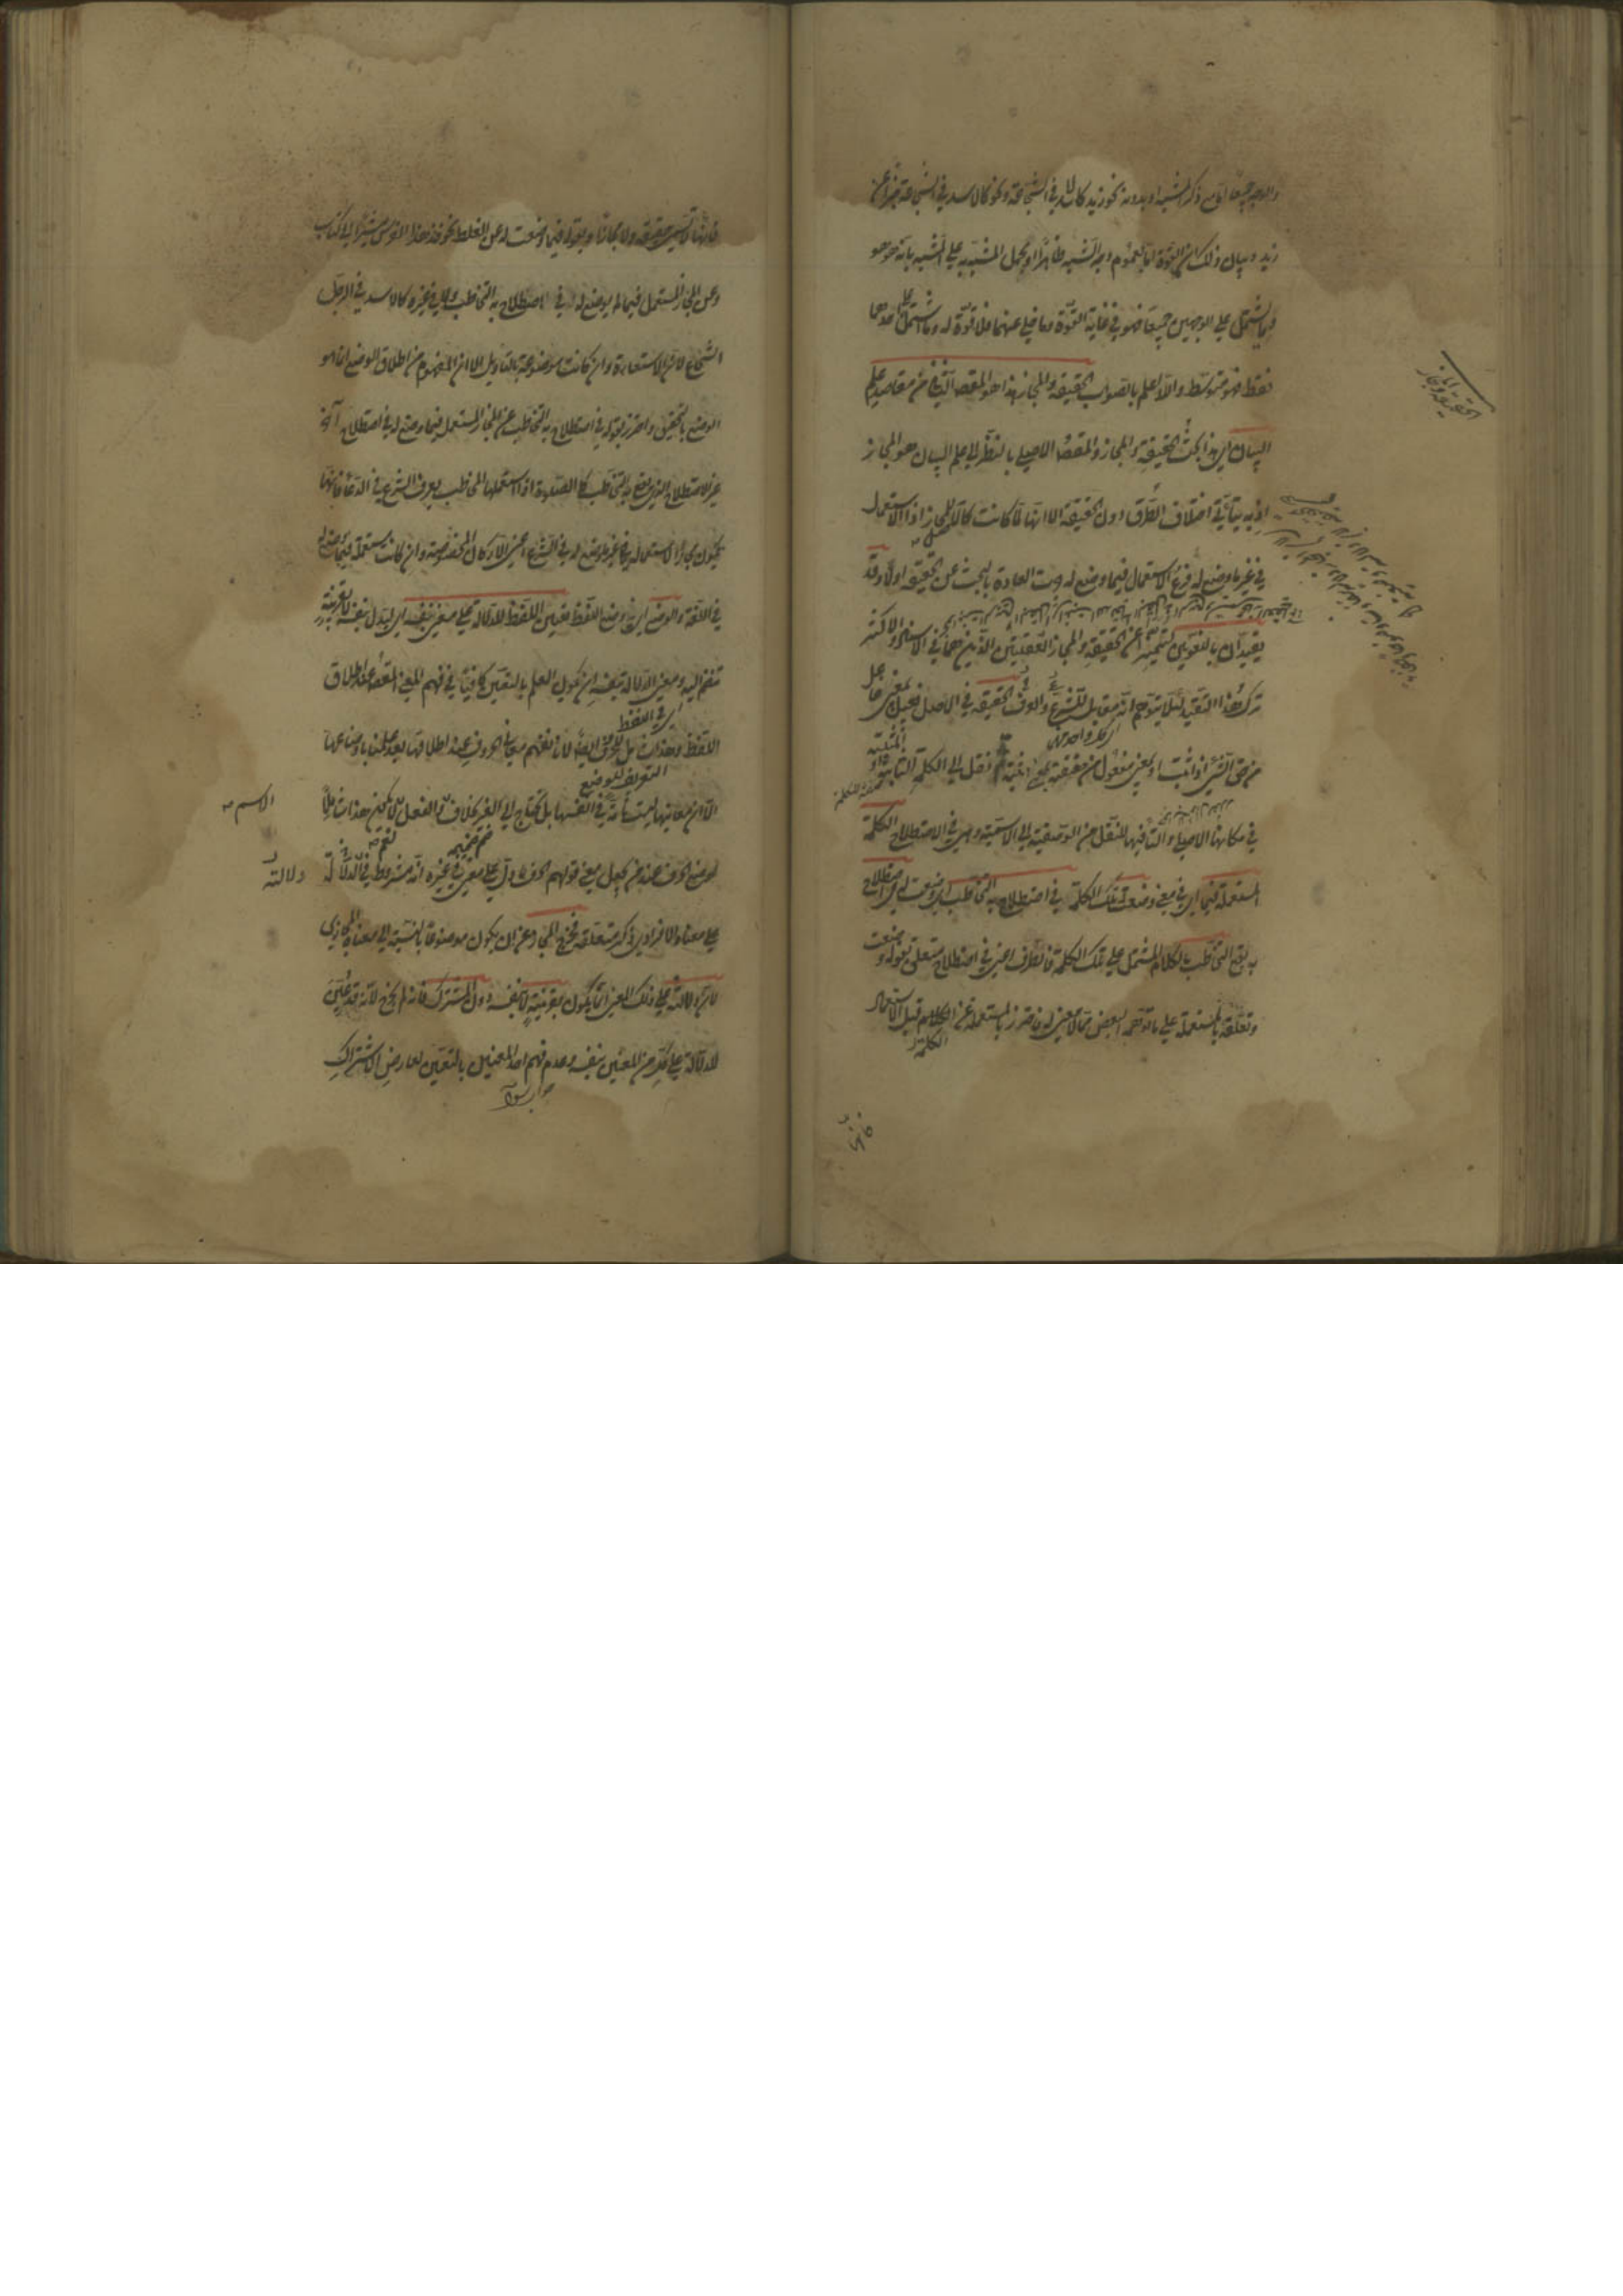 والوجه جميعا اما مع ذكر المشبه او بدونه نحو زيد كالاسد في الشجاعة ونحو كالاسد في الشجاعة خبرا عن
زيد وبيان ذلك ان القوة اما بعموم وجه الشبه ظاهرا او بحمل المشبه به على المشبه بانه هو هو
فما اشتمل على الوجهين جميعا فهو في غاية القوة وما خلى عنهما فلا قوة له وما اشتمل على احدهما
فقط فهو متوسط والله اعلم بالصواب الحقيقة والمجاز هذا هو المقصد الثاني من مقاصد علم
البيان اي هذا بحث الحقيقة والمجاز والمقصد الاصلي بالنظر الى علم البيان هو المجاز
اذ به يتأتى اختلاف الطرق دون الحقيقة الا انها لما كانت كالاصل للمجاز اذ الاستعمال
في غير ما وضع له فرع الاستعمال فيما وضع له جرت العادة بالبحث عن الحقيقة اولا وقد
يقيدان باللغويين ليتميزا عن الحقيقة والمجاز العقليين الذين هما في الاسناد والاكثر
ترك هذا التقييد لئلا يتوهم انه مقابل للشرعي والعرفي الحقيقة في الاصل فعيل بمعنى فاعل
من حق الشيء اذا ثبت او بمعنى مفعول من حققته اذا اثبته ثم نقل الى الكلمة الثابتة او المثبتة
في مكانها الاصلي والتاء فيها للنقل من الوصفية الى الاسمية وهي في الاصطلاح الكلمة
المستعملة فيما اي في معنى وضعت تلك الكلمة له في اصطلاح به التخاطب اي وضعت له في اصطلاح
به يقع التخاطب بالكلام المشتمل على تلك الكلمة فالظرف اعني في اصطلاح متعلق بقوله وضعت
وتعلقه بالمستعملة على ما توهمه البعض مما لا معنى له فاحترز بالمستعملة عن الكلمة قبل الاستعمال
فانها
الحقيقة والمجاز
فانها لا تسمى حقيقة ولا مجازا وبقوله فيما وضعت له عن الغلط نحو خذ هذا الفرس مشيرا الى كتاب
وعن المجاز المستعمل فيما لم يوضع له في اصطلاح به التخاطب ولا في غيره كالاسد في الرجل
الشجاع لان الاستعارة وان كانت موضوعة بالتاويل الا ان المفهوم من اطلاق الوضع انما هو
الوضع بالتحقيق واحترز بقوله في اصطلاح به التخاطب عن المجاز المستعمل فيما وضع له في اصطلاح آخر
غير الاصطلاح الذي به التخاطب كالصلوة اذا استعملها المخاطب بعرف الشرع في الدعاء فانها
تكون مجازا لاستعماله في غير ما وضع له في الشرع اعني الاركان المخصوصة وان كانت مستعملة فيما وضع له
في اللغة والوضع اي وضع اللفظ تعيين اللفظ للدلالة على معنى بنفسه اي ليدل بنفسه لا بقرينة
تنضم اليه ومعنى الدلالة بنفسه ان يكون العلم بالتعيين كافيا في فهم المعنى المقصود عند اطلاق
اللفظ وهذا شامل للحرف ايضا لانا نفهم معاني الحروف عند اطلاقها بعد علمنا باوضاعها
الا ان معانيها ليست تامة في انفسها بل تحتاج الى الغير بخلاف الاسم والفعل نعم لا يكون هذا شاملا
لوضع الحرف عند من يجعل معنى قولهم الحرف ما دل على معنى في غيره انه مشروط في دلالته
على معناه الافرادي ذكر متعلقه فخرج المجاز عن ان يكون موضوعا بالنسبة الى معناه المجازي
لان دلالته على ذلك المعنى انما يكون بقرينة لا بنفسه دون المشترك فانه لم يخرج لانه قد عين
للدلالة على كل من المعنيين بنفسه وعدم فهم احد المعنيين بالتعيين لعارض الاشتراك
الاسم
دلالته